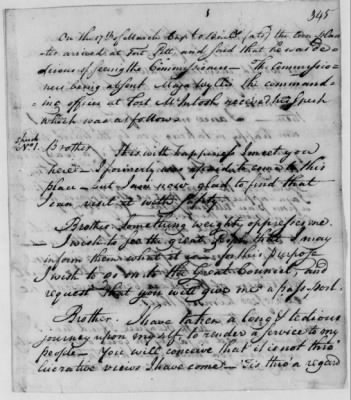 345
On the 17th of March Capt
arrived at Fort Pitt and said that he was de
sirous of seeing the Commissioners — The Commissio-
ners being absent Major Wyllis the command-
ing officer at Fort McIntosh received his speech
which was as follows
Speech
No 1. Brother It is with happiness I meet you
here — I formerly was afraid to come to this
place — but I am now glad to find that
I can visit it with safety
Brother. Something weighty oppresses me.
— I wish to see the great people that I may
inform them what it is — for this purpose
I wish to go on to the Great Council, and
request that you will give me a pass-port.
Brother. I have taken a long & tedious
journey upon myself to render a service to my
people — You will conceive that it is not thro'
lucrative views I have come — 'Tis thro' a regard